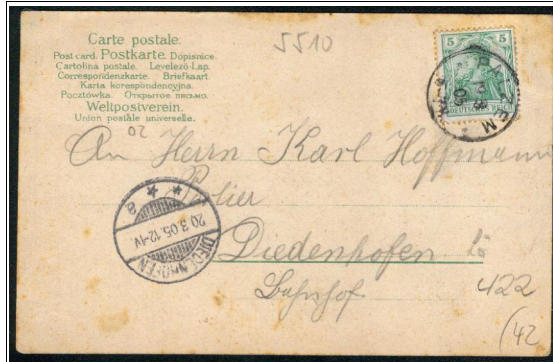 Carte postale.
Post card. Postkarte. Dopisnice.
Cartolina postale. Levelező-Lap.
Correspondenzkarte. Briefkaart.
Karta korespondencyjna.
Pocztówka. Открытое письмо.
Weltpostverein.
Union postale universelle.
5510
5 5
DEUTSCHES REICH
02
An Herrn Karl Hoffmann
Polier
a
20.3.05.12-1V
DIEDENHOFEN
Diedenhofen
Bahnhof
422
(42